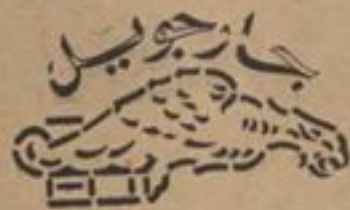 جارجويل